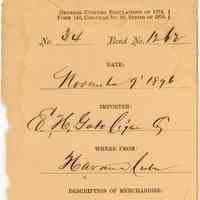 General Customs Regulations of 1874,
Form 140, Circular No. 30, Series of 1876.
No. 34 Bond No. 1262
DATE:
November 9" 1896
IMPORTER:
E. H. Gato Cigar Co
WHERE FROM:
Havana Cuba
DESCRIPTION OF MERCHANDISE: